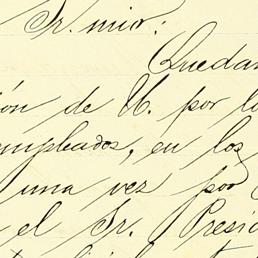 Sr. mior:
Quedan
ión de U. por lo
empleados, en los
una vez por
el Sr. Presid